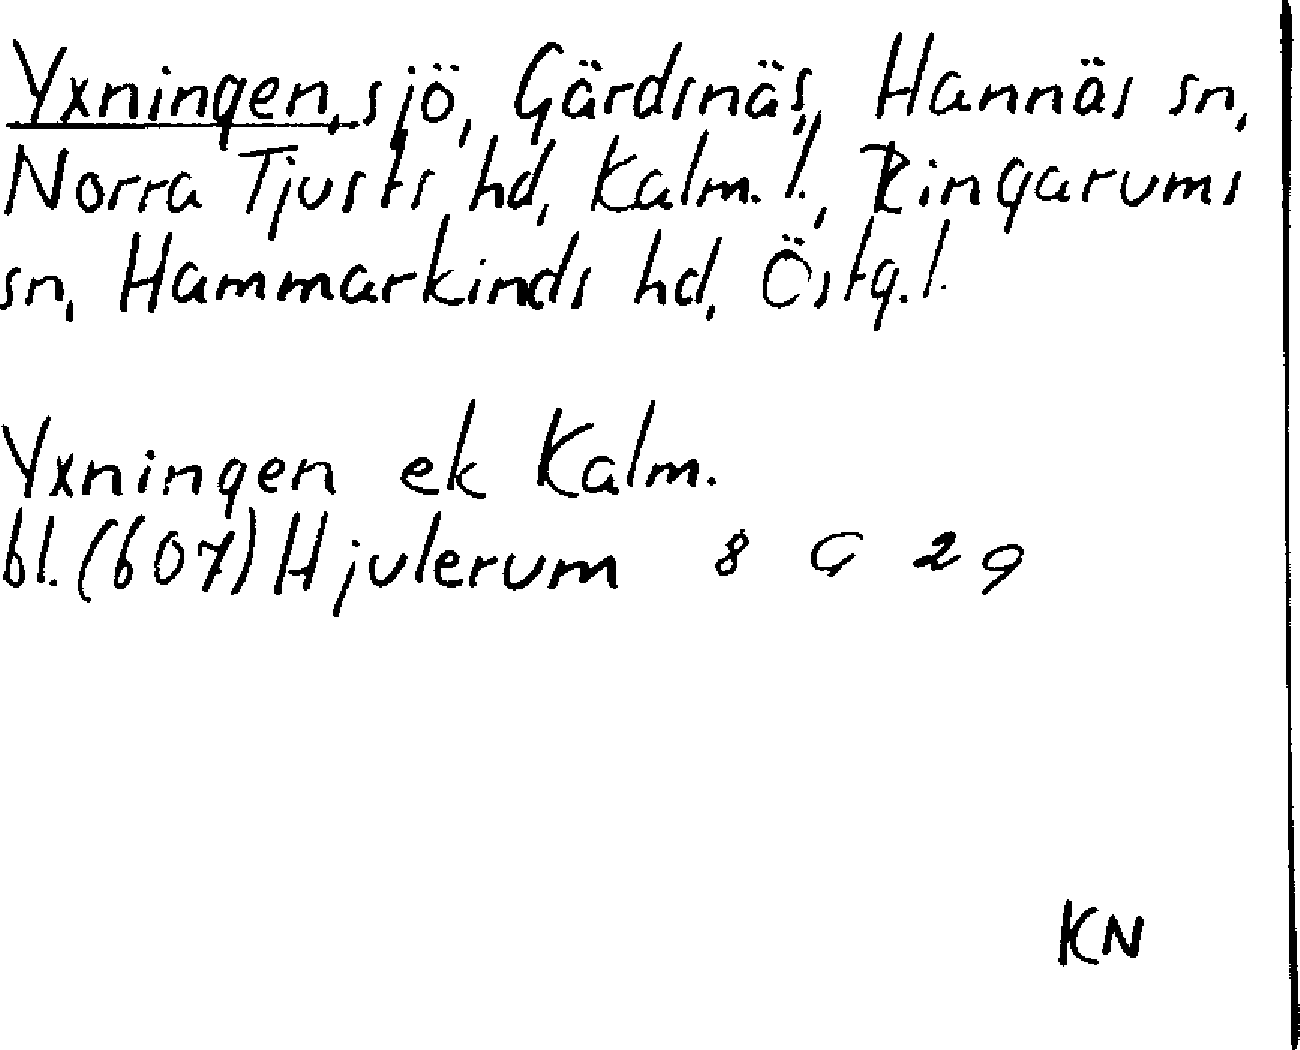 Yxningen, sjö, Gärdsnäs, Hannäs sn,
Norra Tjusts hd, Kalm. l., Ringarums
sn, Hammarkinds hd, Östg. l.
Yxningen ek Kalm.
bl. (607) Hjulerum 8 G 2 g
KN